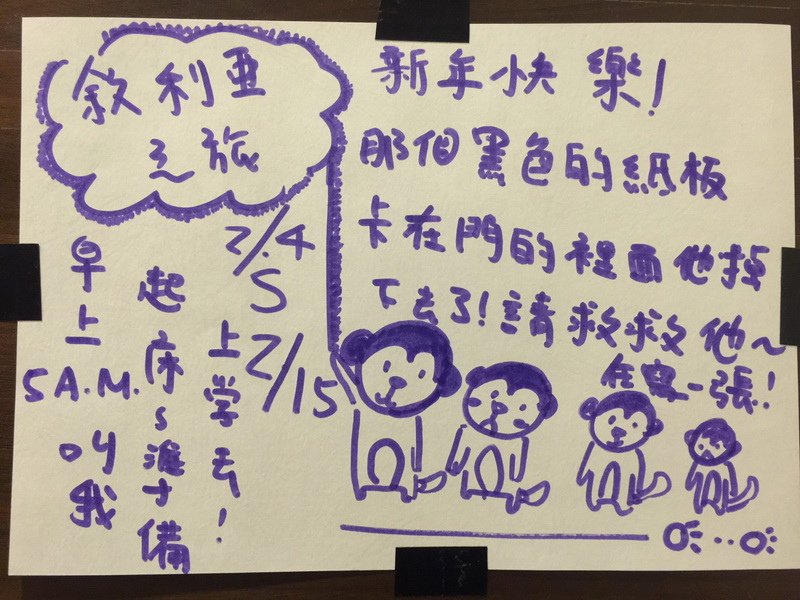 敘利亞
之旅
2/4
S
2/15
新年快樂!
那個黑色的紙板
卡在門的裡面他掉
下去了!請救救他~
在寫一張!
早上
5A.M.
叫我
起床~準備
上学去!